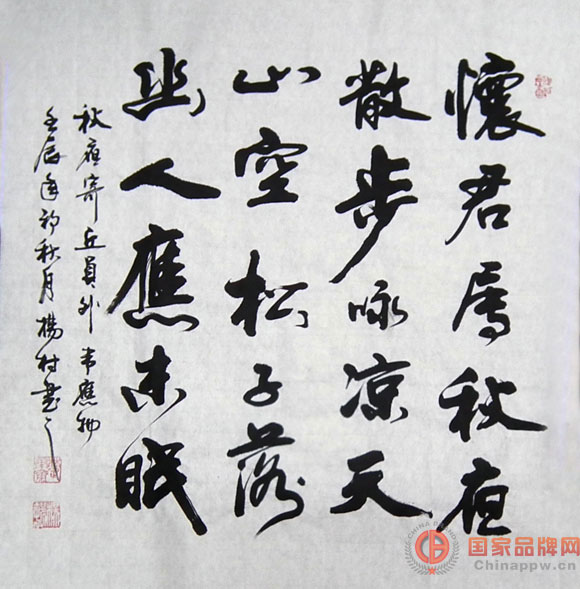 懷君屬秋夜
散步咏凉天
山空松子落
幽人應未眠
秋夜寄丘員外 韋應物
壬辰年初秋月楊村書之
CHINA BRAND
国家品牌网
Chinappw.cn